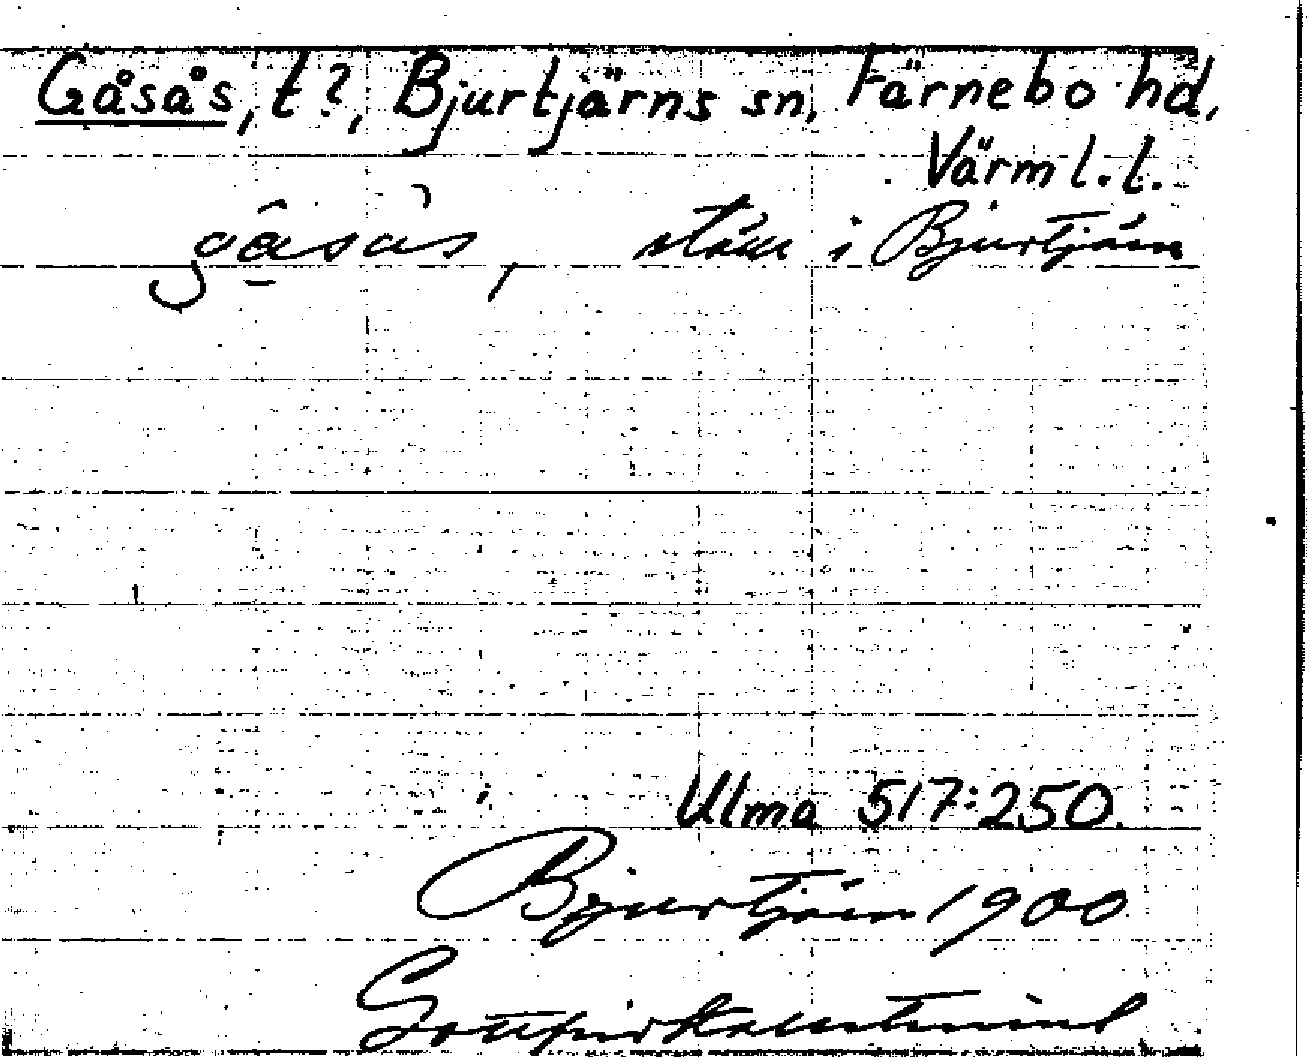 Gåsås, t?, Bjurtjärns sn, Färnebo hd,
Värml. l.
gåsås, i Bjurtjärn
Ulma 517:250.
Bjurtjärn 1900
Gottfrid Kallstenius